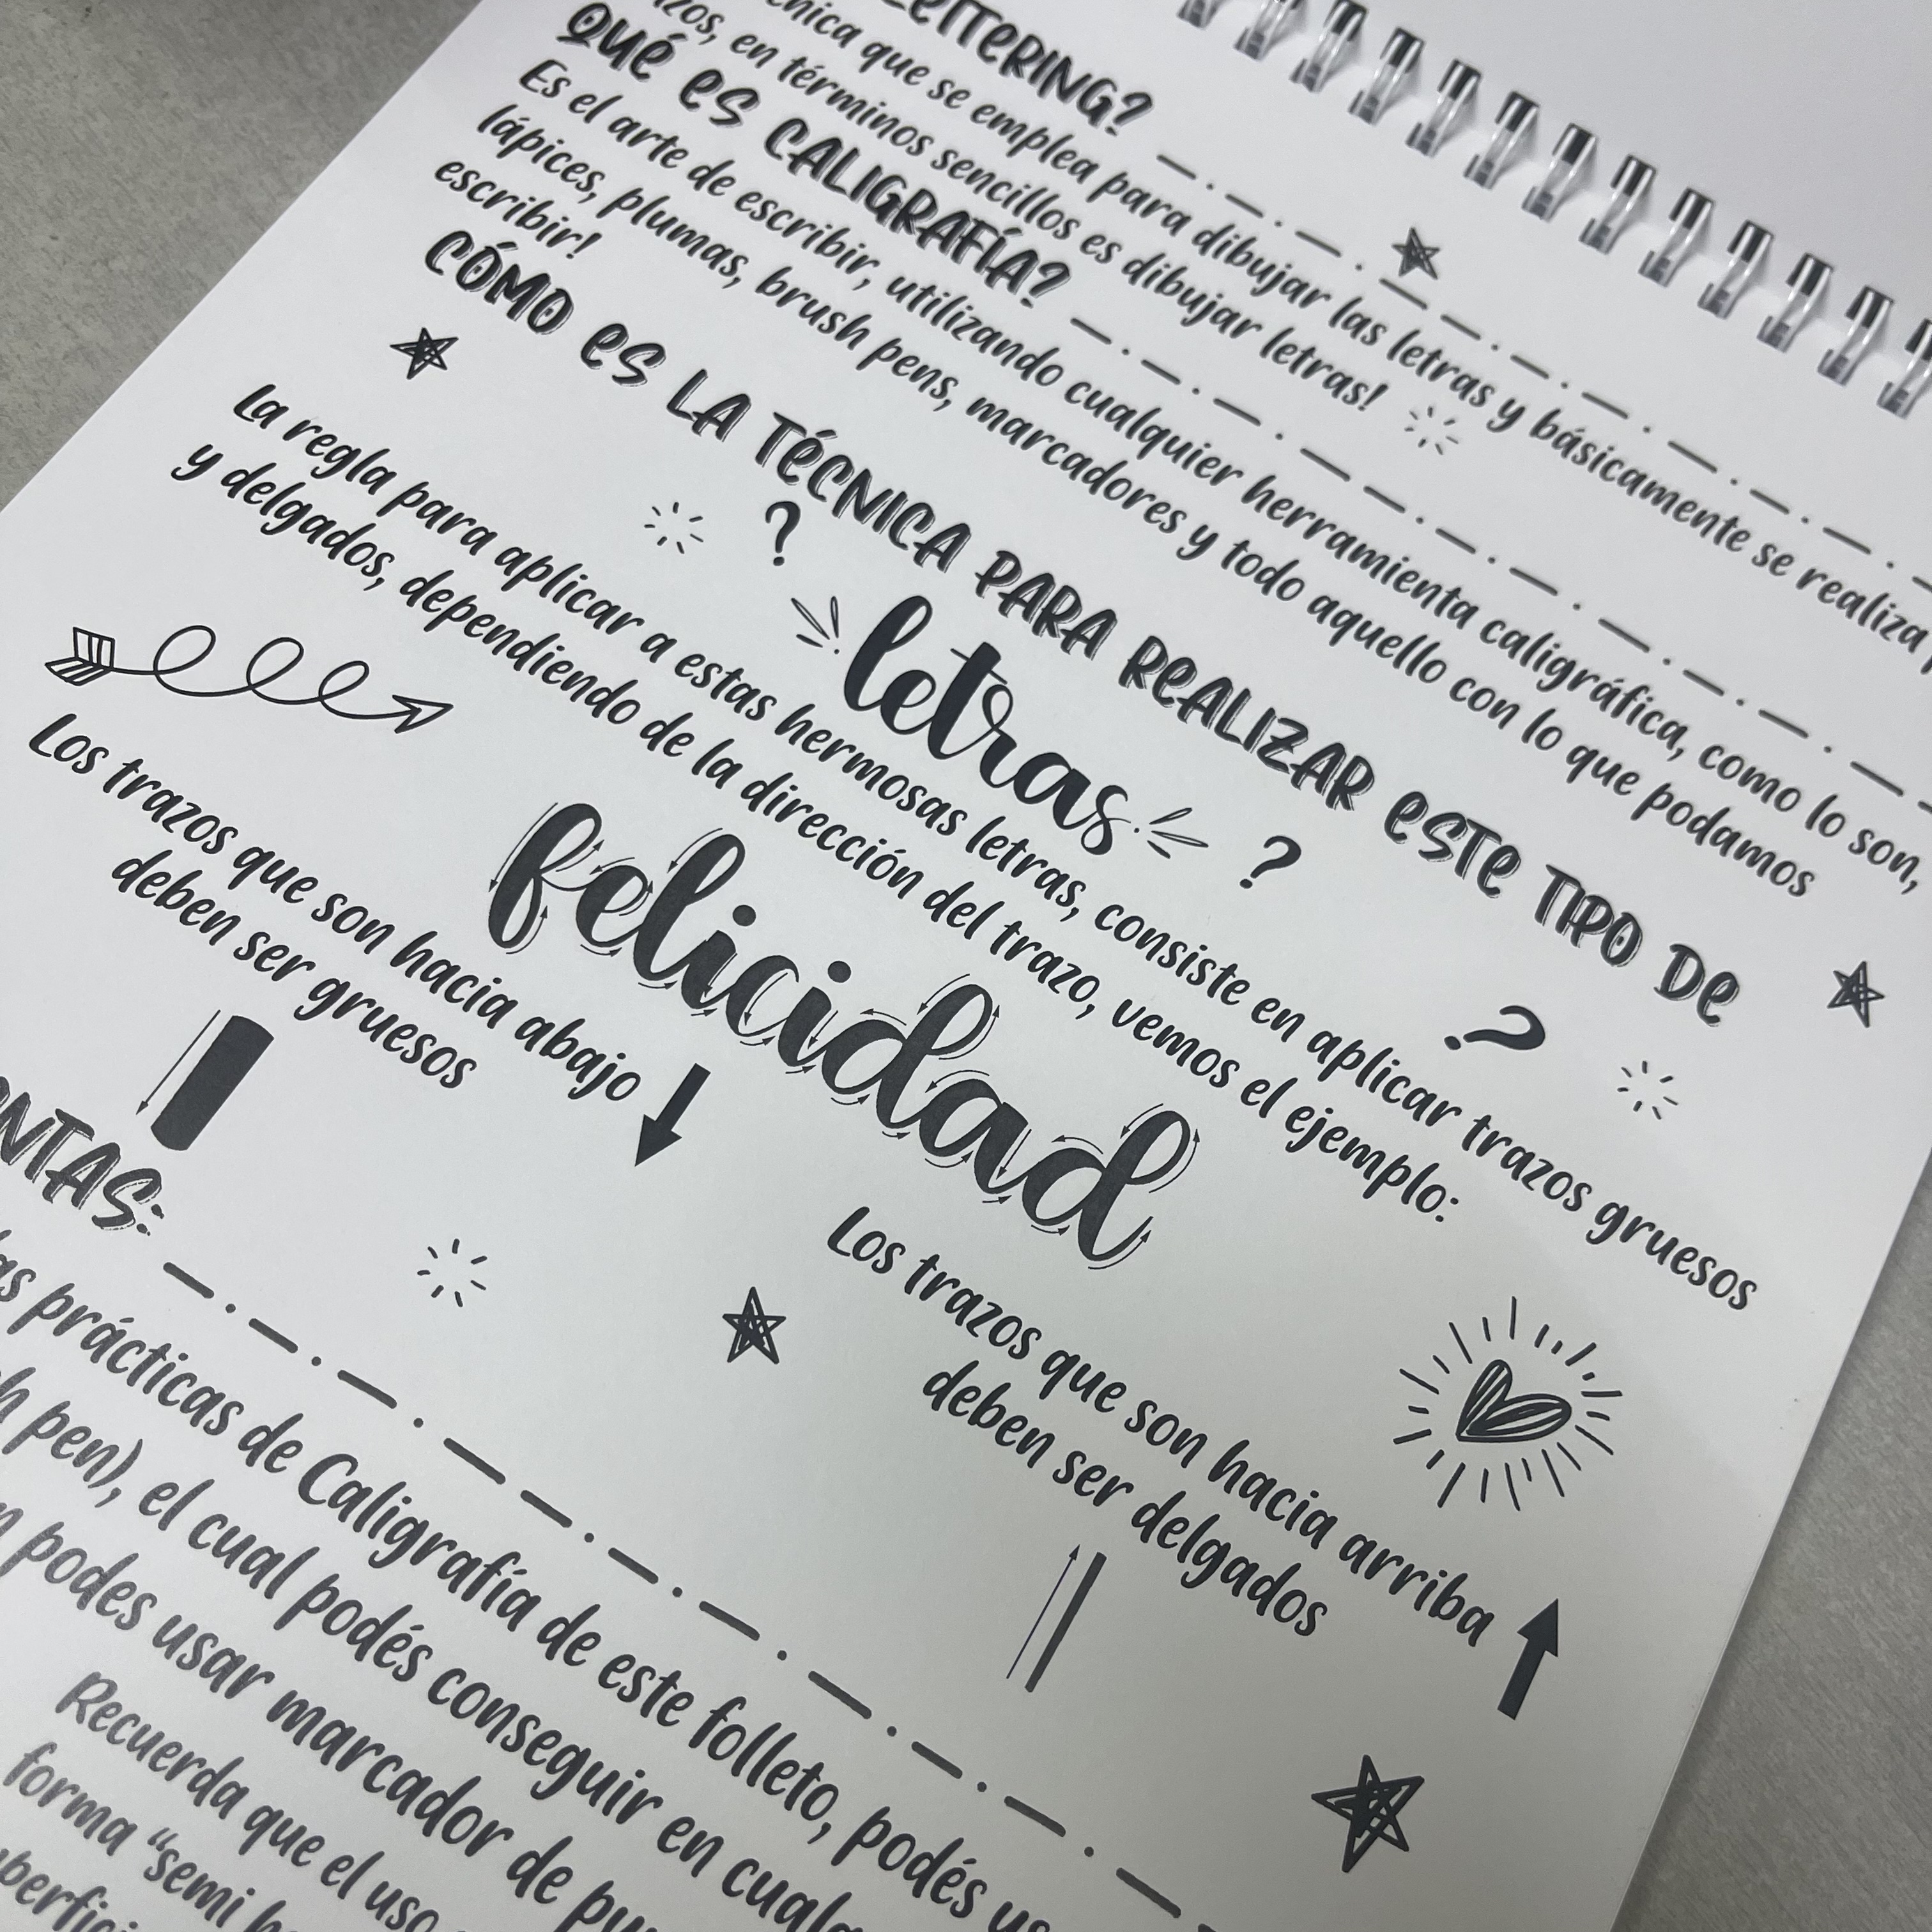 LETTERING?
que se emplea para dibujar las letras y básicamente se realiza
en términos sencillos es dibujar letras!
QUÉ ES CALIGRAFÍA?
Es el arte de escribir, utilizando cualquier herramienta caligráfica, como lo son,
lápices, plumas, brush pens, marcadores y todo aquello con lo que podamos
escribir!
CÓMO ES LA TÉCNICA PARA REALIZAR ESTE TIPO DE
? letras ? ?
La regla para aplicar a estas hermosas letras, consiste en aplicar trazos gruesos
y delgados, dependiendo de la dirección del trazo, vemos el ejemplo:
felicidad
Los trazos que son hacia abajo
deben ser gruesos
Los trazos que son hacia arriba
deben ser delgados
prácticas de Caligrafía de este folleto, podés
pen), el cual podés conseguir en
podes usar marcador de
Recuerda que el uso
forma “semi